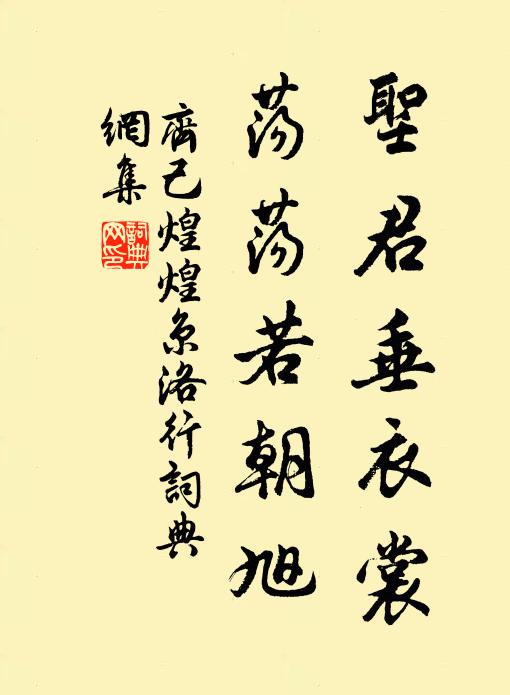 聖君垂衣裳
荡荡若朝旭
齊己煌煌京洛行詞典
網集
詞典网印